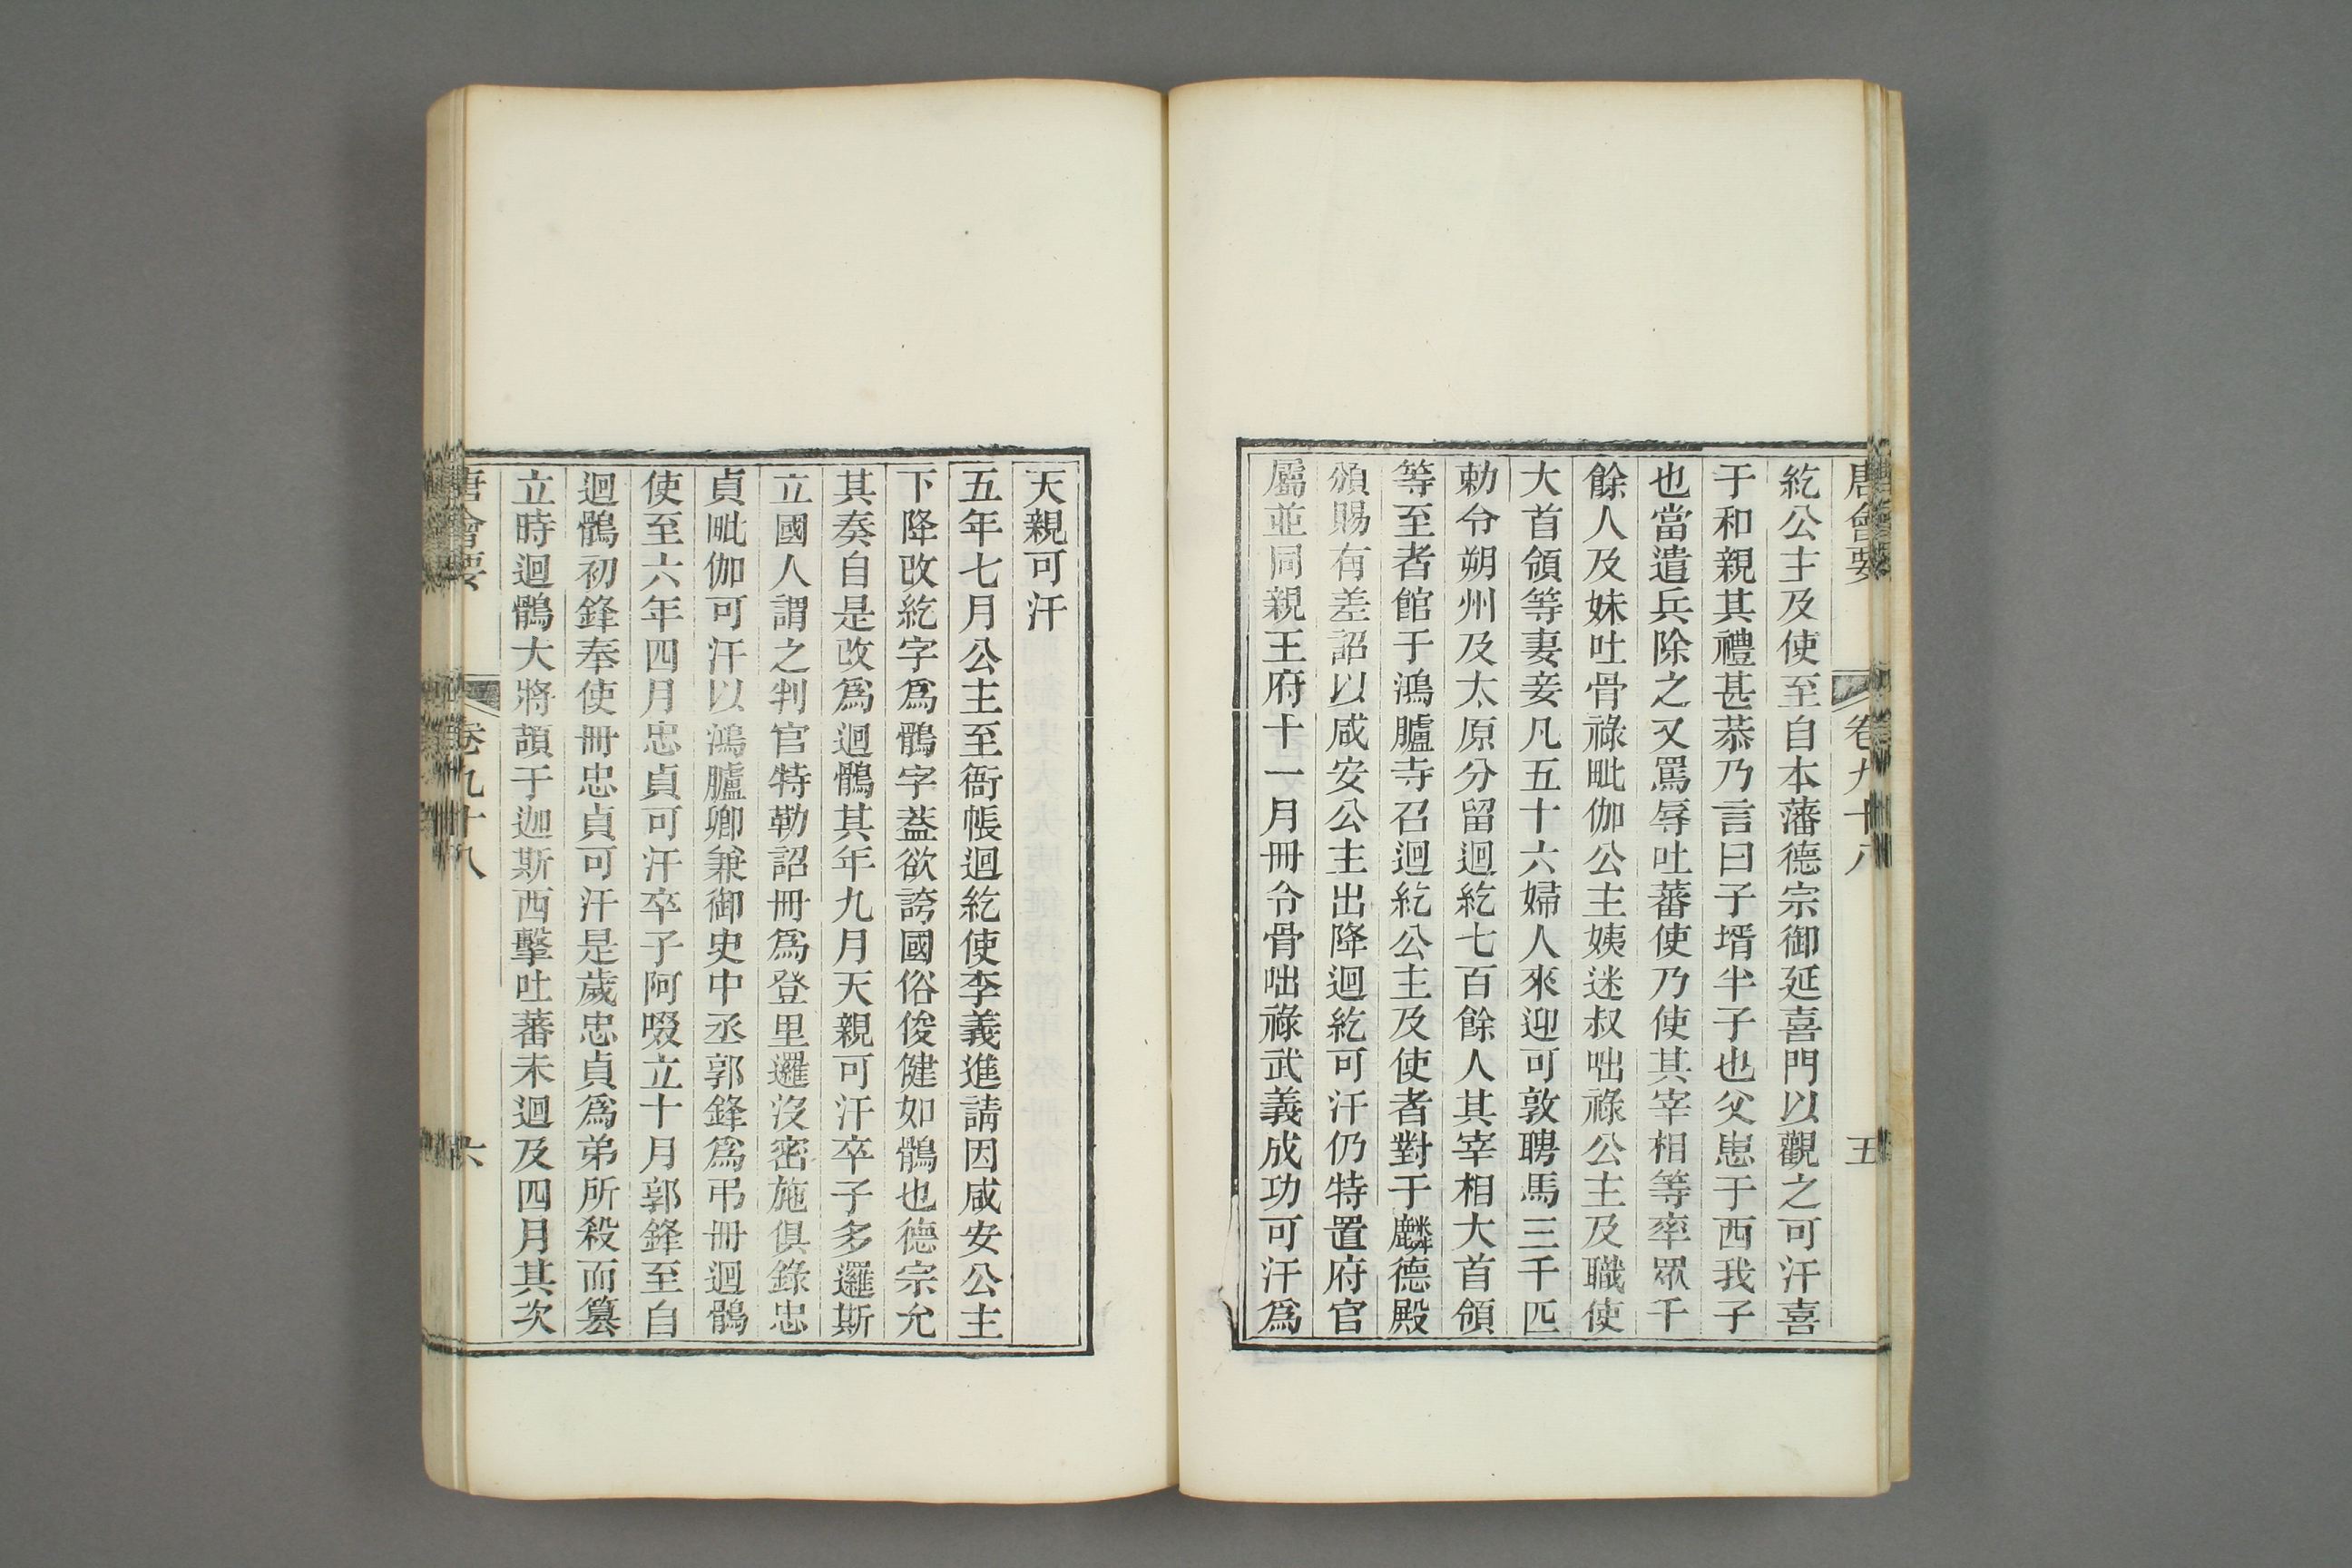 唐會要 卷九十八 五
紇公主及使至自本藩德宗御延喜門以觀之可汗喜
于和親其禮甚恭乃言曰子壻半子也父患于西我子
也當遣兵除之又罵辱吐蕃使乃使其宰相等率眾千
餘人及妹吐骨祿毗伽公主姨迷叔咄祿公主及職使
大首領等妻妾凡五十六婦人來迎可敦聘馬三千匹
勅令朔州及太原分留迴紇七百餘人其宰相大首領
等至者館于鴻臚寺召迴紇公主及使者對于麟德殿
頒賜有差詔以咸安公主出降迴紇可汗仍特置府官
屬並同親王府十一月冊令骨咄祿武義成功可汗爲
天親可汗
五年七月公主至衙帳迴紇使李義進請因咸安公主
下降改紇字爲鶻字葢欲誇國俗俊健如鶻也德宗允
其奏自是改爲迴鶻其年九月天親可汗卒子多邏斯
立國人謂之判官特勒詔冊爲登里邏沒密施俱錄忠
貞毗伽可汗以鴻臚卿兼御史中丞郭鋒爲弔冊迴鶻
使至六年四月忠貞可汗卒子阿啜立十月郭鋒至自
迴鶻初鋒奉使冊忠貞可汗是歲忠貞爲弟所殺而篡
立時迴鶻大將頡于迦斯西擊吐蕃未迴及四月其次
唐會要 卷九十八 六